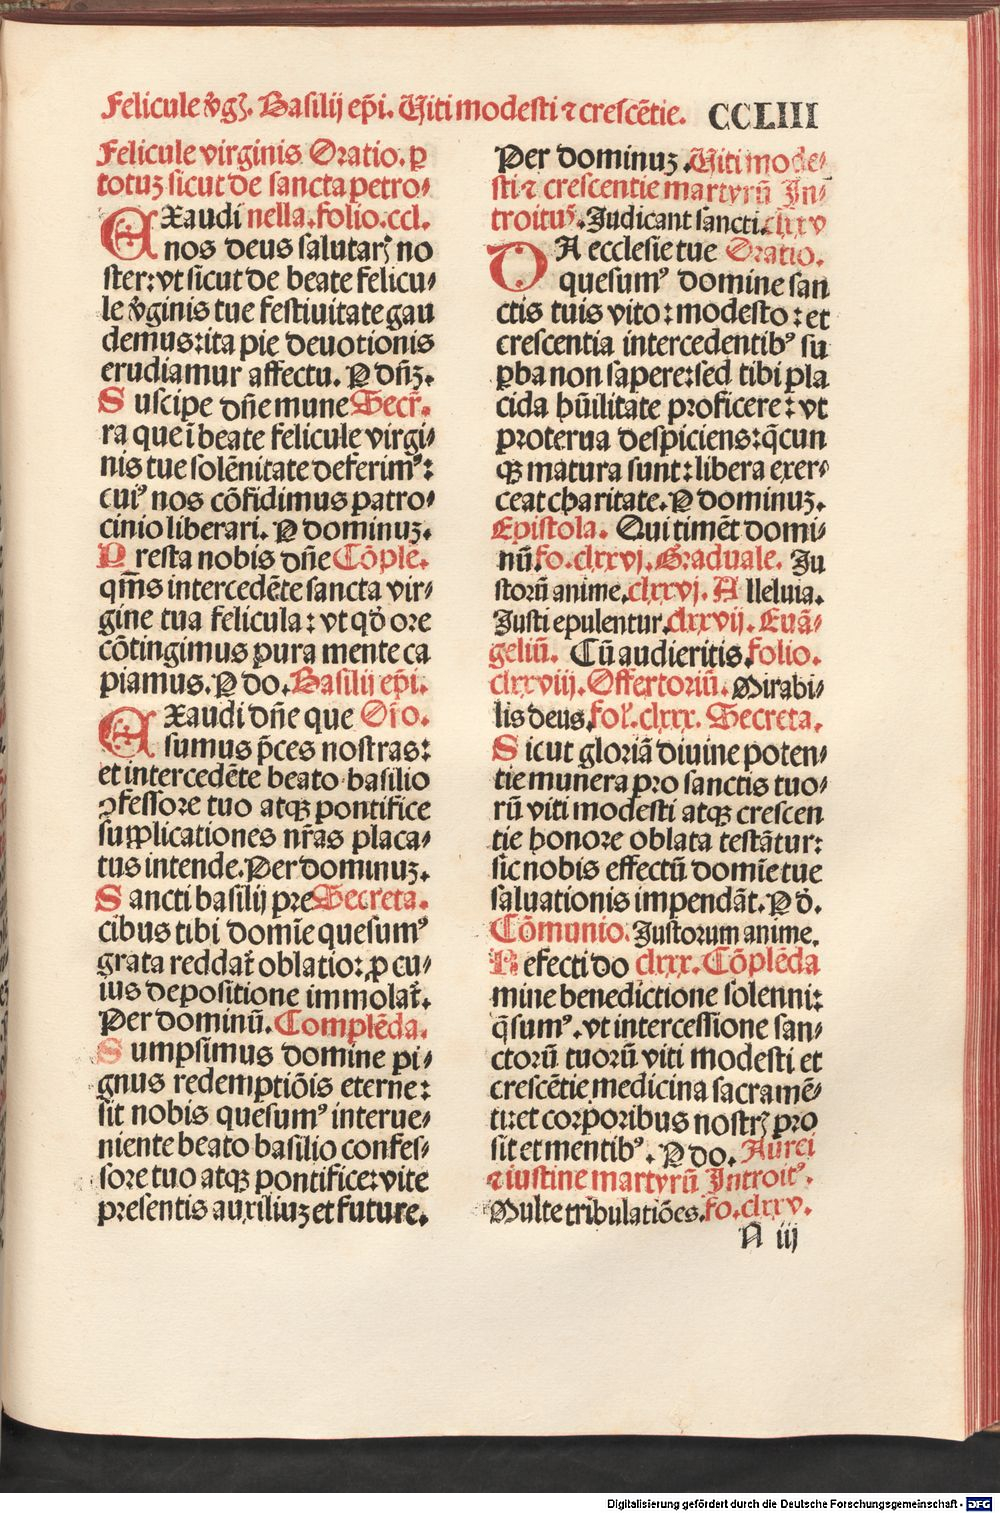 Felicule v̄gꝭ. Basilij ep̄i. Uiti modesti ⁊ crescētie. CCLIII
Felicule virginis Oratio. ꝑ
totuȝ sicut de sancta petro⸗
EXaudi nella. folio. ccl.
nos deus salutarꝭ no
ster: vt sicut de beate felicu⸗
le v̄ginis tue festiuitate gau
demus: ita pie deuotionis
erudiamur affectu. P dn̄ȝ.
Suscipe dn̄e mune Secr̄.
ra que ī beate felicule virgi⸗
nis tue solēnitate deferimꝰ:
cuiꝰ nos cōfidimus patro⸗
cinio liberari. P dominuȝ.
Presta nobis dn̄e Cōple.
qm̄s intercedēte sancta vir⸗
gine tua felicula: vt qd̓ ore
cōtingimus pura mente ca
piamus. P do. Basilij ep̄i.
EXaudi dn̄e que Orō.
sumus p̄ces nostras:
et intercedēte beato basilio
ꝯfessore tuo atqꝫ pontifice
supplicationes nr̄as placa⸗
tus intende. Per dominuȝ.
Sancti basilij pre Secreta.
cibus tibi domīe quesumꝰ
grata reddat᷑ oblatio: ꝓ cu⸗
ius depositione immolat᷑.
Per dominū. Complēda.
Sumpsimus domine pi⸗
gnus redemptiōis eterne:
sit nobis quesumꝰ interue⸗
niente beato basilio confes⸗
sore tuo atqꝫ pontifice: vite
presentis auxiliuȝ et future.
Per dominuȝ. Uiti mode⸗
sti ⁊ crescentie martyrū In⸗
troitꝰ. Judicant sancti. clxxv
DA ecclesie tue Oratio.
quesumꝰ domine san
ctis tuis vito: modesto: et
crescentia intercedentibꝰ su
ꝑba non sapere: sed tibi pla
cida hūilitate proficere: vt
proterua despiciens: q̄cun
qꝫ matura sunt: libera exer⸗
ceat charitate. P dominuȝ.
Epistola. Qui timēt domi⸗
nū. fo. clxxvj. Graduale. Ju
storū anime. clxxvj. Alleluia.
Justi epulentur. clxxvij. Euā⸗
geliū. Cū audieritis. folio.
clxxviij. Offertoriū. Mirabi⸗
lis deus. fol̓. clxxx. Secreta.
Sicut gloriā diuine poten⸗
tie munera pro sanctis tuo⸗
rū viti modesti atqꝫ crescen
tie honore oblata testātur:
sic nobis effectū domīe tue
saluationis impendāt. P d̓.
Cōmunio. Justorum anime.
Refecti do clxxx. Cōplēda
mine benedictione solenni:
q̄sumꝰ. vt intercessione san⸗
ctorū tuorū viti modesti et
crescētie medicina sacramē⸗
ti: et corporibus nostrꝭ pro
sit et mentibꝰ. P do. Aurei
⁊ iustine martyrū Introitꝰ.
Multe tribulatiōes. fo. clxxv.
N iij
Digitalisierung gefördert durch die Deutsche Forschungsgemeinschaft - DFG